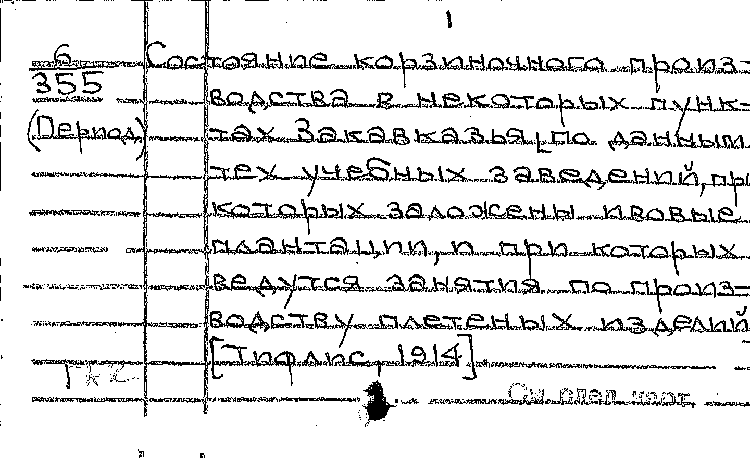 1
6
355
(Период)
Состояние корзиночного произ-
водства в некоторых пунк-
тах Закавказья [по данным
тех учебных заведений, при
которых заложены ивовые
плантации, и при которых
ведутся занятия по произ-
водству плетеных изделий
[Тифлис, 1914].
См. след. карт.